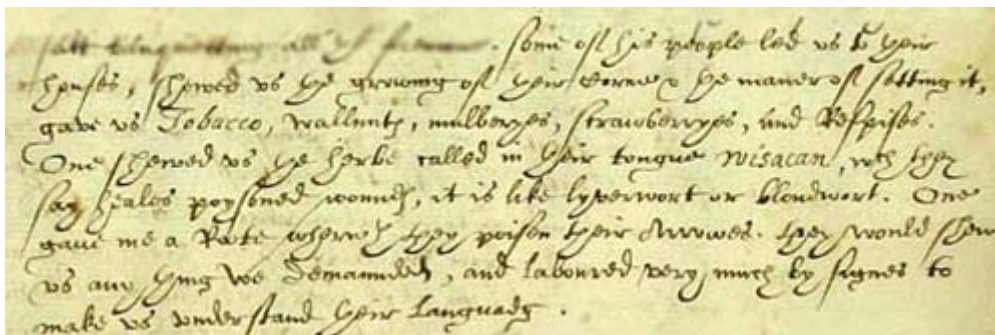 some of his people led us to their
houses, shewed us the growing of their Corne & the maner of setting it,
gave us Tobacco, wallnutes, mulberyes, strawberryes, and Respises.
One shewed us the herbe called in their tongue wisacan, wch they
say heales poysoned woundes, it is like lyverwort or bloudwort. One
gave me a Roote wherwth they poison their Arrowes. they would shew
us any thing we Demaunded, and laboured very much by signes to
make us understand their Languadg.